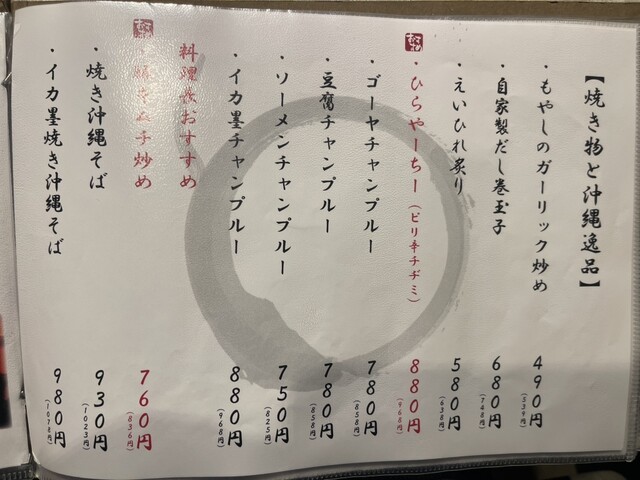 【焼き物と沖縄逸品】
・もやしのガーリック炒め 490円 (539円)
・自家製だし巻玉子 680円 (748円)
・えいひれ炙り 580円 (638円)
・ひらやーちー(ピリ辛チヂミ) 880円 (968円)
・ゴーヤチャンプルー 780円 (858円)
・豆腐チャンプルー 780円 (858円)
・ソーメンチャンプルー 750円 (825円)
・イカ墨チャンプルー 880円 (968円)
料理長おすすめ
キムチ炒め 760円 (836円)
・焼き沖縄そば 930円 (1023円)
・イカ墨焼き沖縄そば 980円 (1078円)